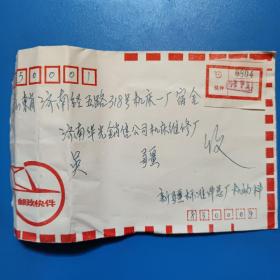 50001
山东省济南经五路318号机床一厂宿舍
济南华光销售公司机床维修厂
吴 疆 收
新疆标准件总厂
830009
邮政快件